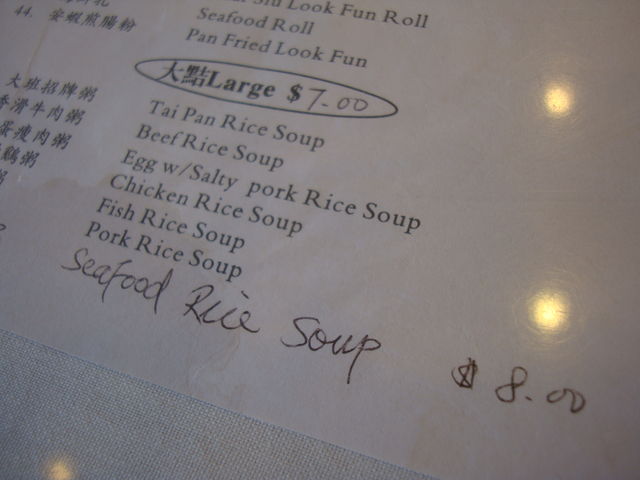 Look Fun Roll
44. 安蝦煎腸粉 Seafood Roll
Pan Fried Look Fun
大點Large $7.00
大班招牌粥 Tai Pan Rice Soup
香滑牛肉粥 Beef Rice Soup
蛋瘦肉粥 Egg w/Salty pork Rice Soup
鷄粥 Chicken Rice Soup
粥 Fish Rice Soup
Pork Rice Soup
Seafood Rice Soup $8.00